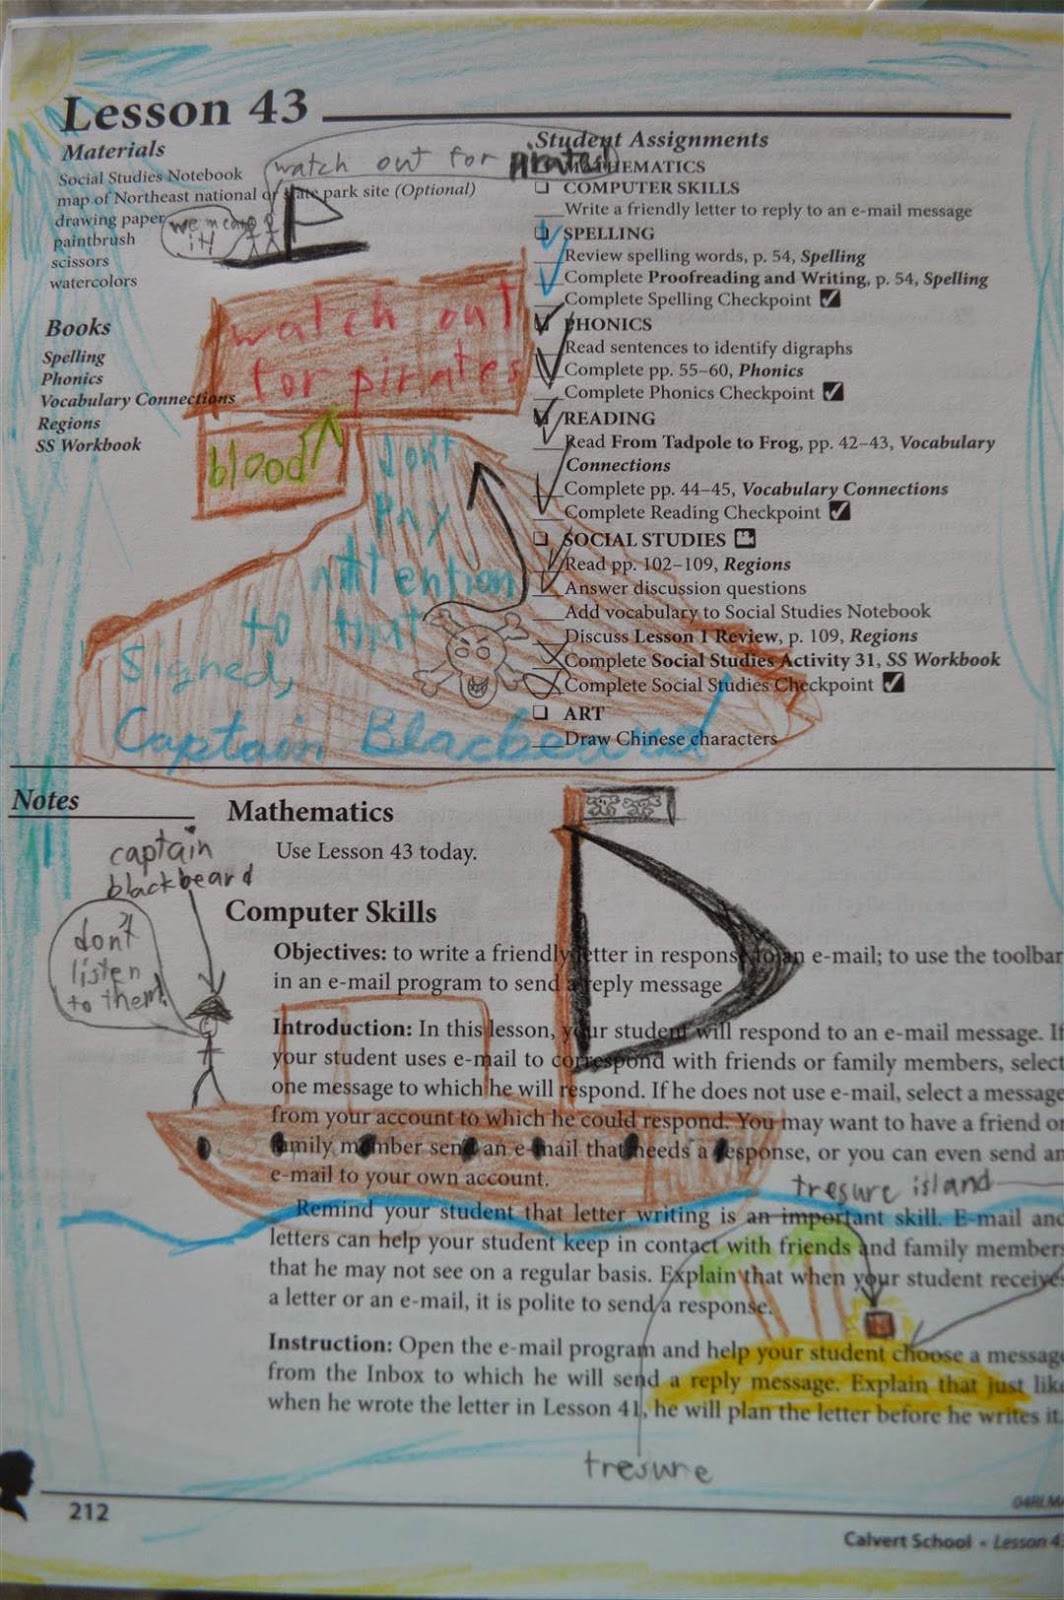 Lesson 43
Materials
Social Studies Notebook
map of Northeast national or state park site (Optional)
drawing paper
paintbrush
scissors
watercolors
Books
Spelling
Phonics
Vocabulary Connections
Regions
SS Workbook
watch out for pirates!
we mean it!
watch out
for pirates
blood
don't
pay
attention
to that
Signed,
Captain Blackbeard
Student Assignments
MATHEMATICS
COMPUTER SKILLS
Write a friendly letter to reply to an e-mail message
SPELLING
Review spelling words, p. 54, Spelling
Complete Proofreading and Writing, p. 54, Spelling
Complete Spelling Checkpoint
PHONICS
Read sentences to identify digraphs
Complete pp. 55–60, Phonics
Complete Phonics Checkpoint
READING
Read From Tadpole to Frog, pp. 42–43, Vocabulary
Connections
Complete pp. 44–45, Vocabulary Connections
Complete Reading Checkpoint
SOCIAL STUDIES
Read pp. 102–109, Regions
Answer discussion questions
Add vocabulary to Social Studies Notebook
Discuss Lesson 1 Review, p. 109, Regions
Complete Social Studies Activity 31, SS Workbook
Complete Social Studies Checkpoint
ART
Draw Chinese characters
Notes
captain
blackbeard
don't
listen
to them!
Mathematics
Use Lesson 43 today.
Computer Skills
Objectives: to write a friendly letter in response to an e-mail; to use the toolbar
in an e-mail program to send a reply message
Introduction: In this lesson, your student will respond to an e-mail message. If
your student uses e-mail to correspond with friends or family members, select
one message to which he will respond. If he does not use e-mail, select a message
from your account to which he could respond. You may want to have a friend or
family member send an e-mail that needs a response, or you can even send an
e-mail to your own account.
tresure island
Remind your student that letter writing is an important skill. E-mail and
letters can help your student keep in contact with friends and family members
that he may not see on a regular basis. Explain that when your student receives
a letter or an e-mail, it is polite to send a response.
Instruction: Open the e-mail program and help your student choose a message
from the Inbox to which he will send a reply message. Explain that just like
when he wrote the letter in Lesson 41, he will plan the letter before he writes it.
tresure
212
Calvert School • Lesson 43